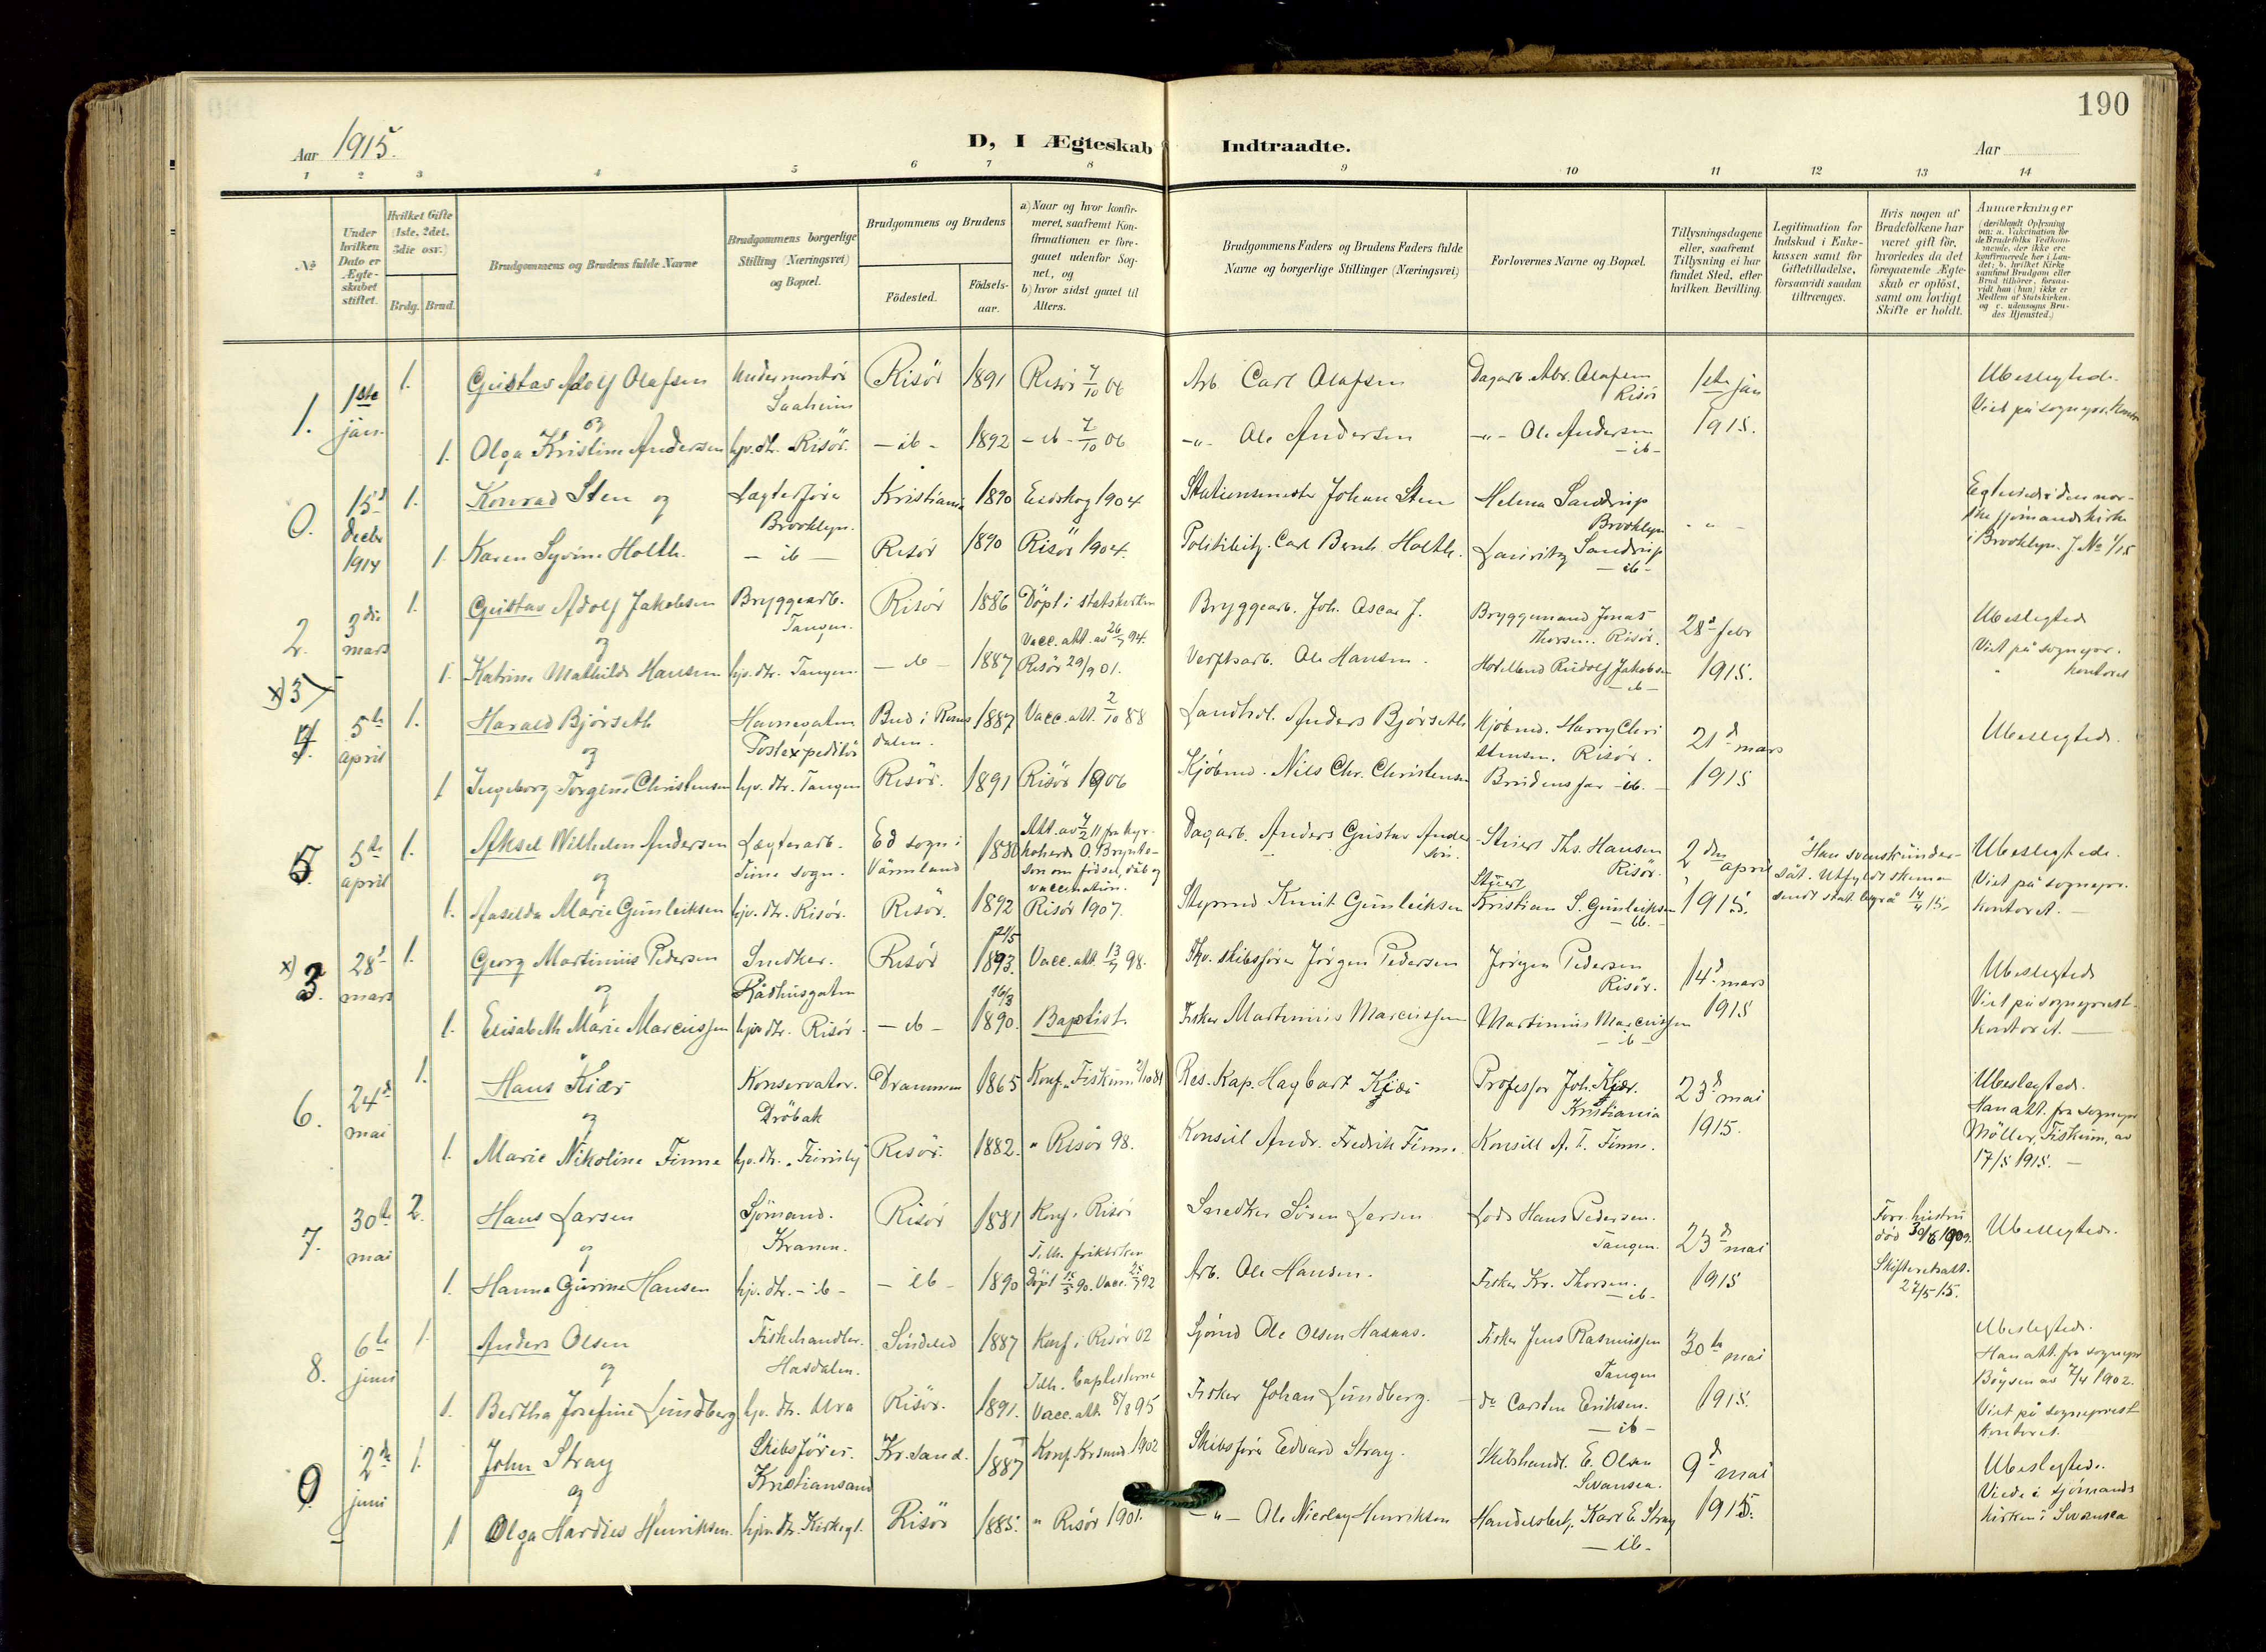 190
Aar 1915.
D, I Ægteskab Indtraadte.
Aar
1 2 3 4 5 6 7 8 9 10 11 12 13 14
№
Under hvilken Dato er Ægteskabet stiftet.
Hvilket Gifte (1ste, 2det, 3die osv.)
Brdg. Brud.
Brudgommens og Brudens fulde Navne
Brudgommens borgerlige Stilling (Næringsvei) og Bopæl.
Brudgommens og Brudens
Fødested.
Fødselsaar.
a) Naar og hvor konfirmeret, saafremt Konfirmationen er foregaaet udenfor Sognet, og
b) hvor sidst gaaet til Alters.
Brudgommens Faders og Brudens Faders fulde Navne og borgerlige Stillinger (Næringsvei)
Forlovernes Navne og Bopæl.
Tillysningsdagene eller, saafremt Tillysning ei har fundet Sted, efter hvilken Bevilling.
Legitimation for Indskud i Enkekassen samt for Giftetilladelse, forsaavidt saadan tiltrænges.
Hvis nogen af Brudefolkene har været gift før, hvorledes da det foregaaende Ægteskab er opløst, samt om lovligt Skifte er holdt.
Anmærkninger
(deriblandt Oplysning om: a. Vakcination for de Brudefolks Vedkommende, der ikke ere konfirmerede her i Landet; b. hvilket Kirkesamfund Brudgom eller Brud tilhører, forsaavidt han (hun) ikke er Medlem af Statskirken, og c. udensogns Brudes Hjemsted.)
1. 1ste jan. 1. Gustav Adolf Olafsen Undermontör Saaheim Risör 1891 Risör 7/10 06 Arb. Carl Olafsen Dagarb. Abr. Olafsen Risör 1ste jan Ubeslegtede.
og Viet på sognepr. kontor
1. Olga Kristine Andersen hjv. dtr. Risör. - ib - 1892 - ib - 7/10 06 -"- Ole Andersen -"- Ole Andersen - ib - 1915.
0. 15d decbr 1914 1. Konrad Sten og Lægterförer Brooklyn. Kristiania 1890 Eidskog 1904 Stationsmester Johan Sten Helma Sandrup Brooklyn - " - Egteviet i den norske sjömandskirke
1. Karen Syvine Holth. - ib - Risör 1890 Risör 1904. Politibtj. Carl Bernh. Holth. Lauritz Sandrup - ib - i Brooklyn. J. No 1/15
2. 3die mars 1. Gustav Adolf Jakobsen Bryggearb. Tangen. Risör 1886 Döpt i statskirken Bryggearb. Joh. Oscar J. Bryggemand Jonas Thorsen. Risör. 28d febr Ubeslegtede
og Vacc. att. av 26/7 94. Viet på sognepr.
1. Katrine Mathilde Hansen hjv. dtr. Tangen. - ib - 1887 Risör 29/9 01. Verftsarb. Ole Hansen. Hotelbud Rudolf Jakobsen - ib - 1915. kontoret
x) 3
4. 5te april 1. Harald Bjørseth Havnegaten Postexpeditör Bud i Romsdalen. 1887 Vacc. att. 2/10 88 Landhdl. Anders Bjørseth Kjöbmd. Harry Christensen. Risör. 21d mars Ubeslegtede.
og
1 Ingeborg Torgine Christensen hjv. dtr. Tangen Risör. 1891 Risör 1906 Kjöbmd. Nils Chr. Christensen Brudens far - ib. - 1915
5. 5te april 1. Aksel Wilhelm Andersen Lægterarb. Tinne sogn. Ed sogn i Värmland 1880 Att. av 7/2 11 fra kyrkoherde O. Bryntesson om födsel, dåb og vaccination. Dagarb. Anders Gustav Andersson. Stuert Ths. Hansen Risör. 2den april Han svensk undersåt. Utfyldt skema sendt stat. byrå 14/4 15. Ubeslegtede.
og Viet på sognepr.
1. Aasilda Marie Gunleiksen hjv. dtr. Risör. Risör. 1892 Risör 1907. Styrmd Knut Gunleiksen Stuert Kristian S. Gunleiksen - ib. - 1915. kontoret. -
x) 3. 28d mars 1. Georg Martinius Pedersen Snedker. Rådhusgaten Risör 21/5 1893. Vacc. att. 13/7 98. Fhv. skibsförer Jörgen Pedersen Jörgen Pedersen Risör. 14d mars Ubeslegtede
og Viet på sogneprest-
1. Elisabeth Marie Marcussen hjv. dtr. Risör - ib - 16/3 1890. Baptist. Fisker Martinius Marcussen Martinius Marcussen - ib - 1915 kontoret. -
6. 24d mai 1. Hans Kiær Konservator. Dröbak Drammen 1865 Konf. Fiskum Res. Kap. Hagbart Kiær Professor Joh. Kjær. Kristiania 23d mai Ubeslegtede.
og Han att. fra sognepr
1. Marie Nikoline Finne hjv. dtr. Risör. 1882. " Risör 98. Konsul Andr. Fredrik Finne. Konsul A. F. Finne. 1915. Möller, Fiskum, av 17/5 1915. -
7. 30te mai 2. Hans Larsen Sjömand. Kranen. Risör 1881 Konf. i Risör Snedker Sören Larsen Lods Hans Pedersen. Tangen. 23d mai Forr. hustru död 30/6 1909. Ubeslegtede.
og Tilh. frikirken Skifteretsatt.
1. Hanna Gurine Hansen hjv. dtr. - ib - - ib - 1890 Döpt 15/5 90. Vacc. 25/7 92 Arb. Ole Hansen. Fisker Kr. Thorsen. - ib - 1915 27/5 15.
8. 6te juni 1. Anders Olsen Fiskehandler. Hasdalen. Söndeled 1887 Konf. i Risör 02 Sjömd Ole Olsen Hasaas. Fisker Jens Rasmussen Tangen 30te mai Ubeslegtede.
og Tilh. baptisterne Han att. fra sognepr
1. Bertha Josefine Lundberg hjv. dtr. Ura Risör. 1891. Vacc. att. 8/8 95 Fisker Johan Lundberg. do Carsten Eriksen. - ib - 1915. Böysen av 7/4 1902.
Viet på sogneprest kontoret.
9. 2den juni 1. John Stray Skibsförer. Kristiansand Kr.sand. 1887 Konf. Krsand. 1902 Skibsförer Edvard Stray. Skibshandl. E. Olsen Swansea. 9d mai Ubeslegtede.
og Viede i sjömands
1 Olga Hardies Henriksen. hjv. dtr. Kirkegt. Risör 1885. " Risör 1901. - " - Ole Nicolay Henriksen Handelsbetj. Karl E. Stray - ib - 1915. kirken i Swansea